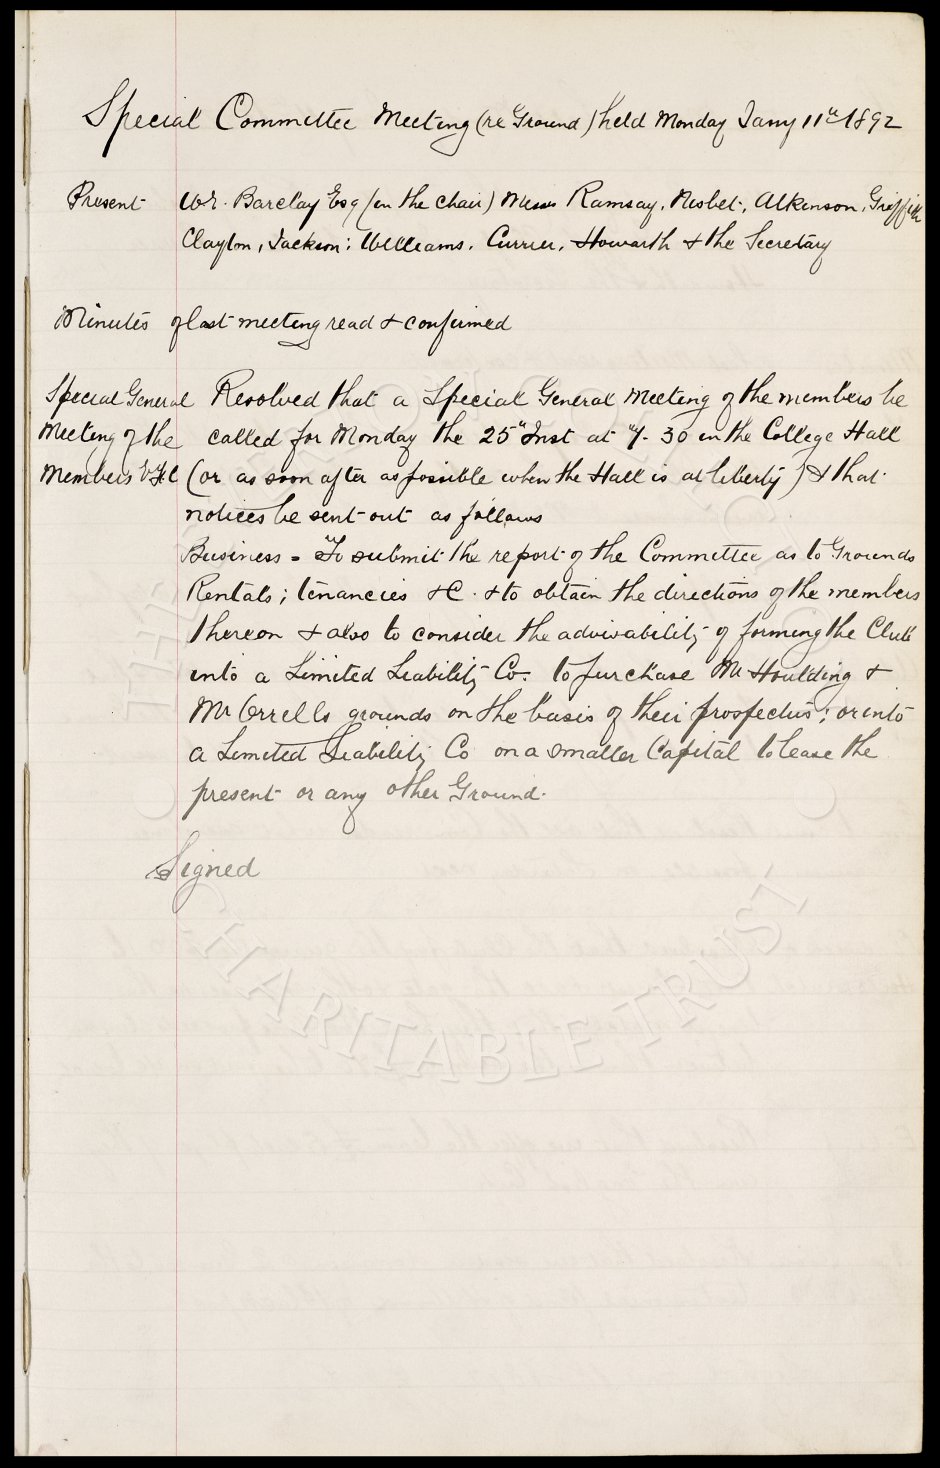 Special Committee Meeting (re Ground) held Monday Jany 11th 1892
Present Wr. Barclay Esq (in the chair) Messrs Ramsay, Nisbet, Atkinson, Griffith
Clayton, Jackson; Williams, Currier, Howarth & the Secretary
Minutes of last meeting read & confirmed
Special General Resolved that a Special General Meeting of the members be
Meeting of the called for Monday the 25th Inst at 7.30 in the College Hall
Members (or as soon after as possible when the Hall is at liberty) & that
notices be sent out as follows
Business = To submit the report of the Committee as to Grounds
Rentals; tenancies &c. & to obtain the directions of the members
thereon & also to consider the advisability of forming the Club
into a Limited Liability Co. to purchase Mr Houlding &
Mr Orrells grounds on the basis of their prospectus; or into
a Limited Liability Co on a smaller Capital to lease the
present or any other Ground.
Signed
CHARITABLE TRUST